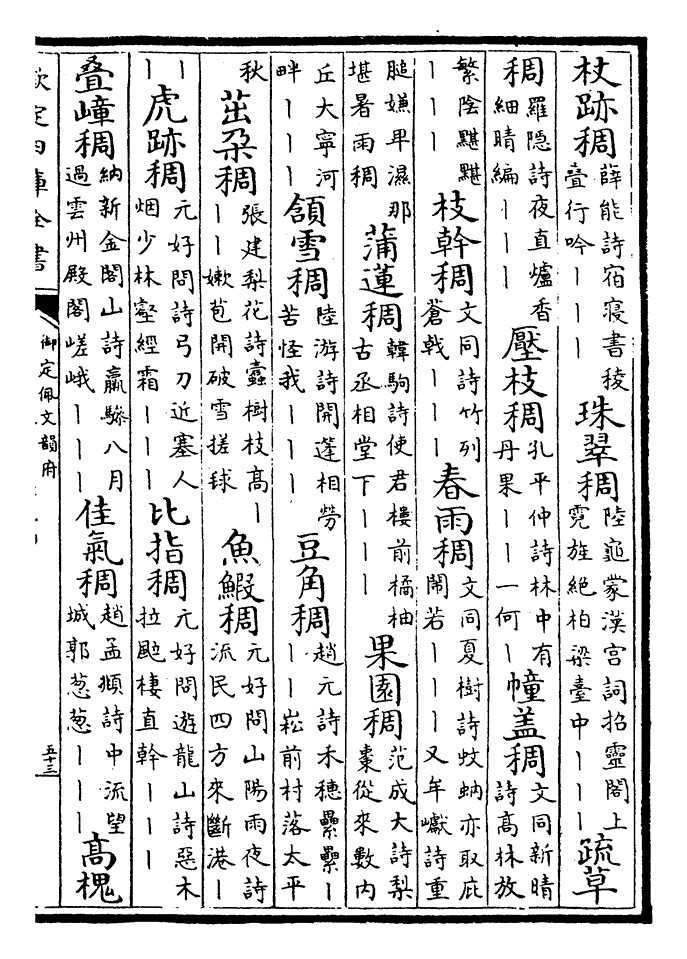 杖跡稠薛能詩宿寢書稜疊行吟丨丨丨珠翠稠陸龜蒙漢宮詞招靈閣上霓旌絕柏梁臺中丨丨丨疏草
稠羅隱詩夜直爐香細晴編丨丨丨壓枝稠孔平仲詩林中有丹果丨丨一何丨幢盖稠文同新晴詩高林放
繁陰黮黮丨丨丨枝幹稠文同詩竹列蒼戟丨丨丨春雨稠文同夏樹詩蚊蚋亦取庇鬧若丨丨丨又年巘詩重
膇嫌早濕那堪暑雨稠蒲蓮稠韓駒詩使君樓前橘柚古丞相堂下丨丨丨果園稠范成大詩梨棗從來數內
丘大寧河畔丨丨丨頷雪稠陸游詩開蓬相勞苦怪我丨丨丨豆角稠趙元詩禾穗纍纍丨丨丨崧前村落太平
秋茁朶稠張建梨花詩蠹樹枝高丨丨丨嫰苞開破雪搓毬魚鰕稠元好問山陽雨夜詩流民四方來斷港丨
丨丨虎跡稠元好問詩弓刀近塞人烟少林壑經霜丨丨丨比指稠元好問遊龍山詩惡木拉颭棲直幹丨丨丨
疊嶂稠納新金閣山詩贏驂八月過雲州殿閣嵯峨丨丨丨佳氣稠趙孟頫詩中流望城郭葱葱丨丨丨高槐
欽定四庫全書
御定佩文韻府
五十三